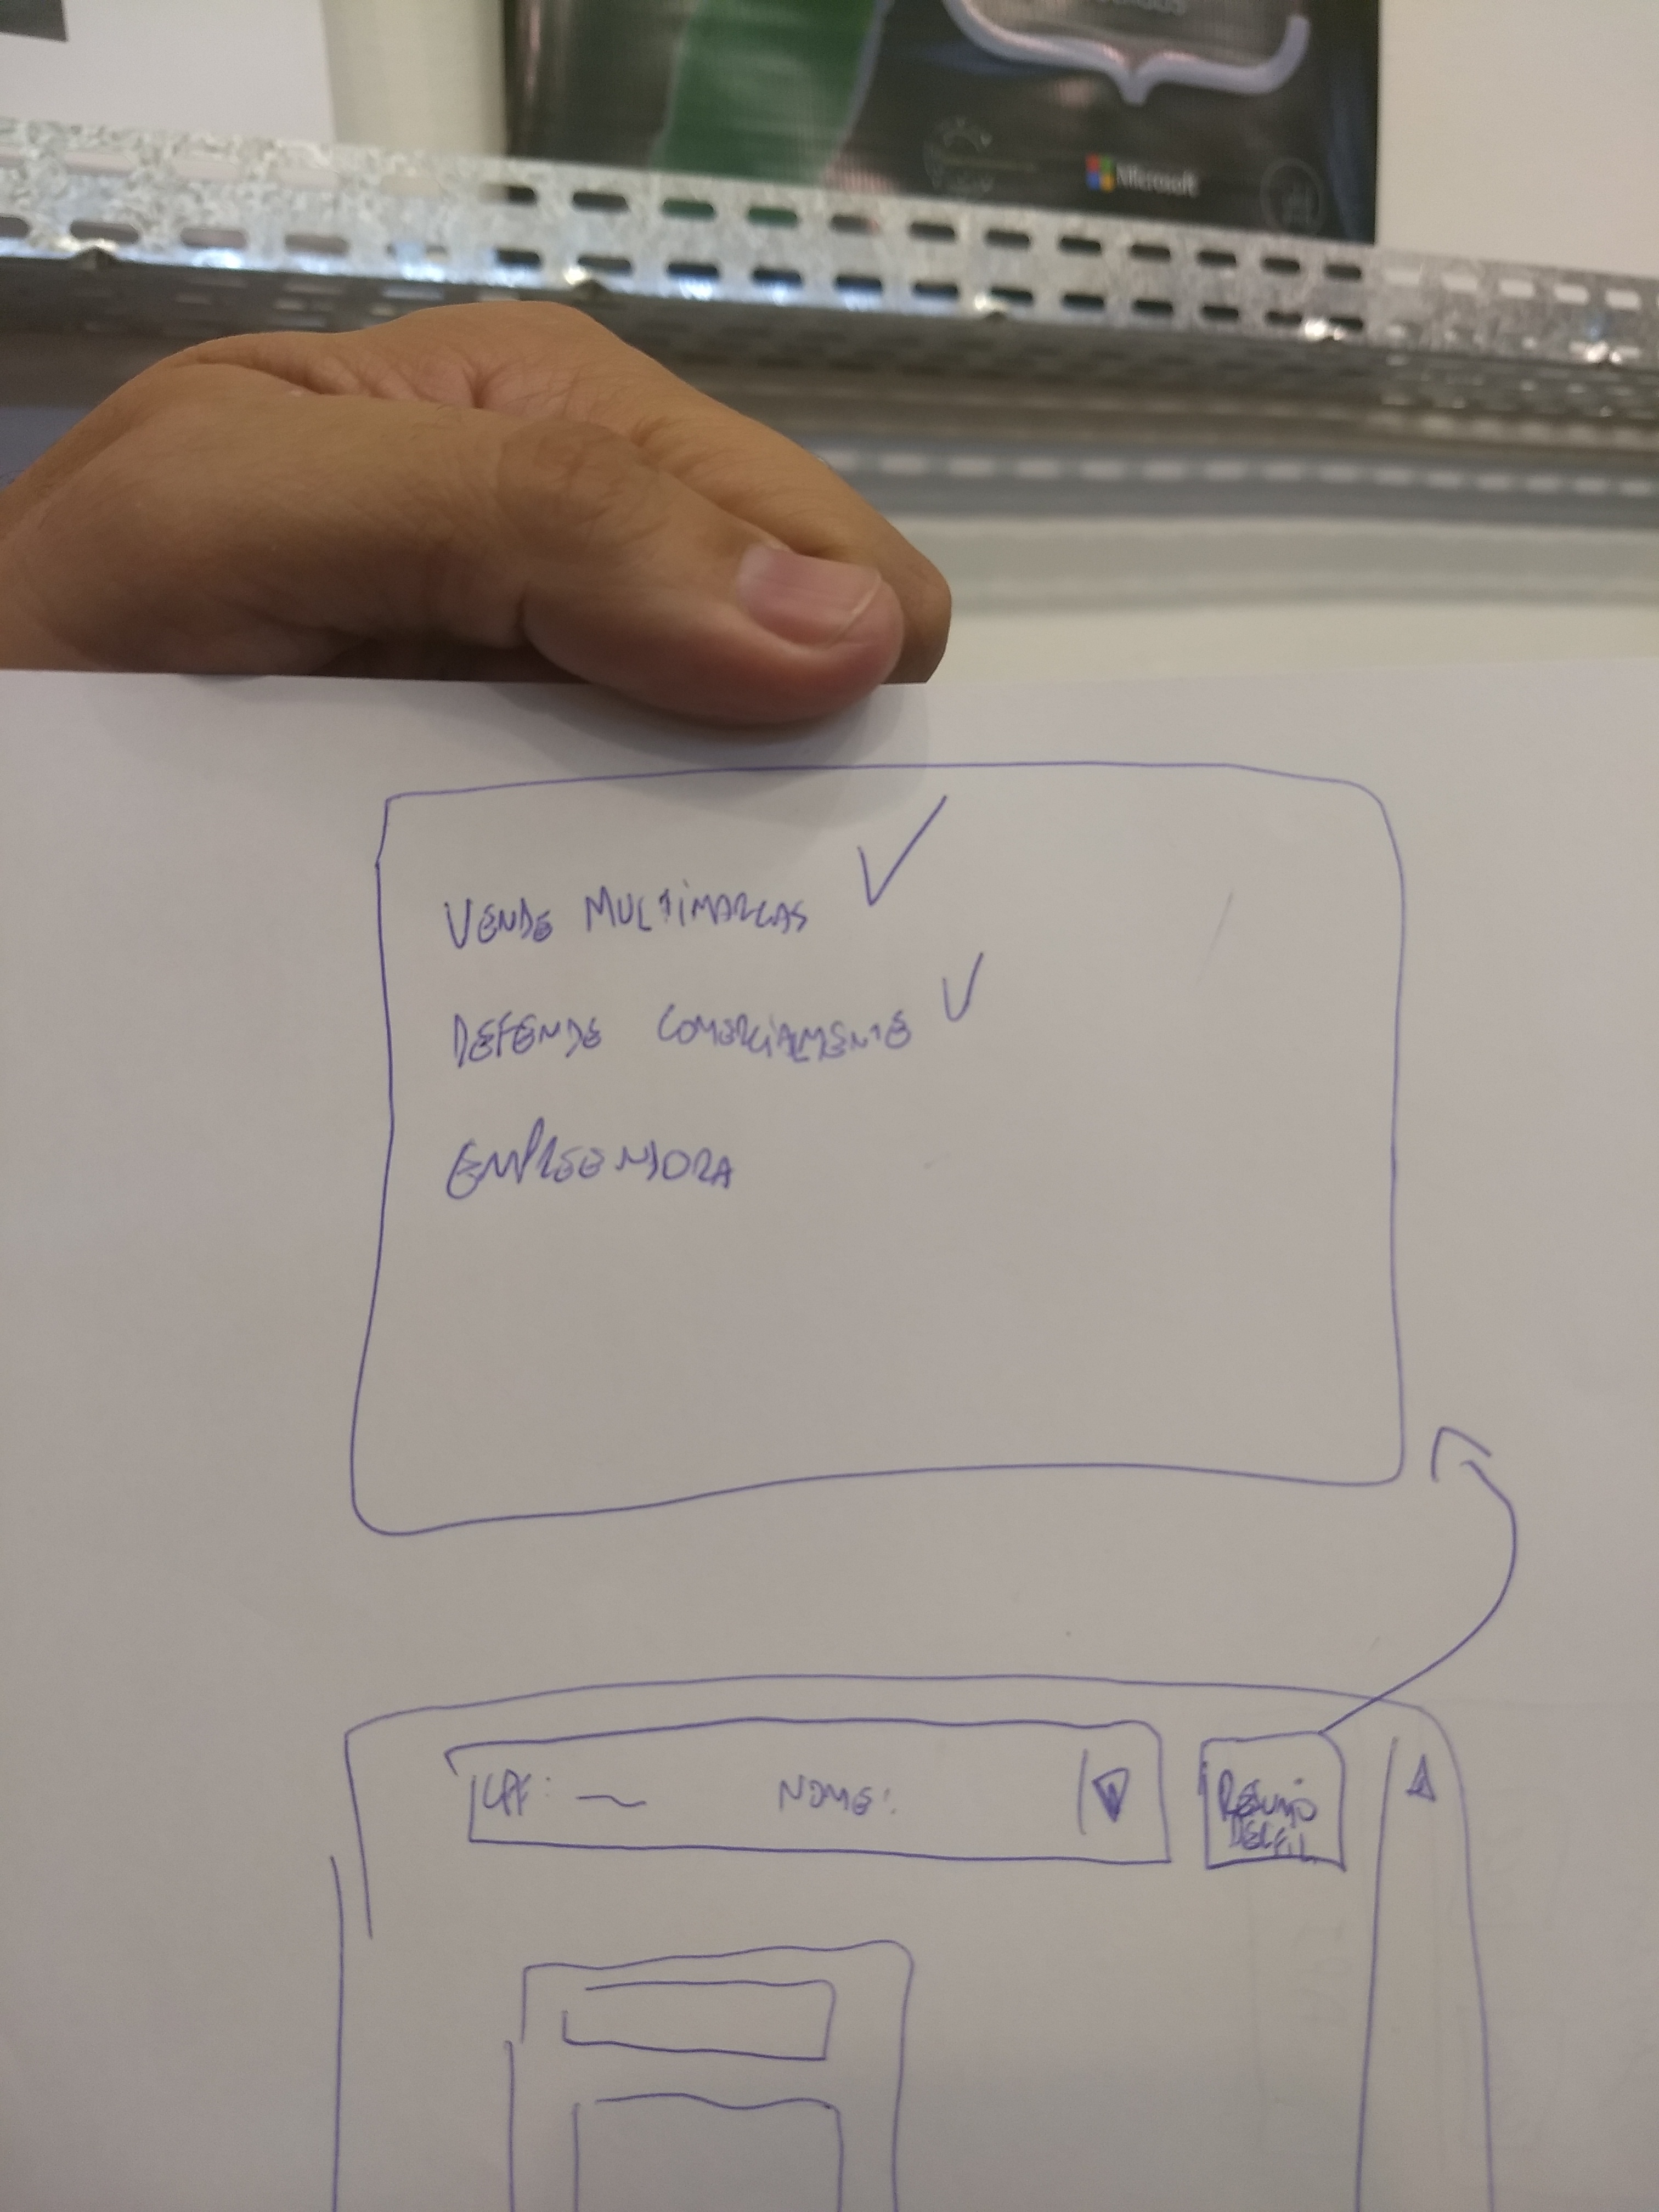 Microsoft
VENDE MULTIMARCAS
DEFENDE COMERCIALMENTE
EMPREENDORA
CPF: NOME:
RESUMO
PERFIL